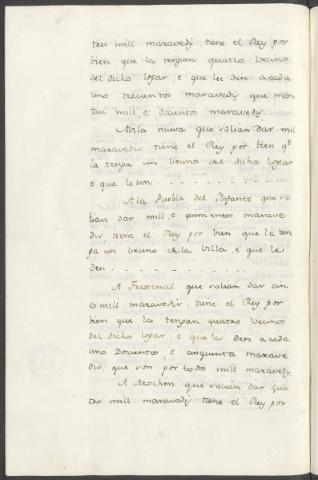 tres mill maravedis, tiene el Rey por
bien que la tengan quatro vecinos
del dicho logar, e que les den a cada
uno trecientos maravedis que mon
tan mill e docientos maravedis.
nueva que solian dar mil
maravedis tiene el Rey por bien qe
la tenga un vecino del dicho logar
e que le den . - - - - - - - -
A la Puebla del Infante que so
lian dar mill, e quinientos marave
dis, tiene el Rey por bien que la ten
ga un vecino de la villa, e que le
den . - - - - - - - -
A Frexenal que solian dar cin
co mill maravedis, tiene el Rey por
bien que la tengan quatro vecinos
del dicho logar, e que les den a cada
uno docientos, e cinquenta marave
dis, que son por todos mill maravedis.
A Arochen que solian dar qua
tro mill maravedis tiene el Rey por